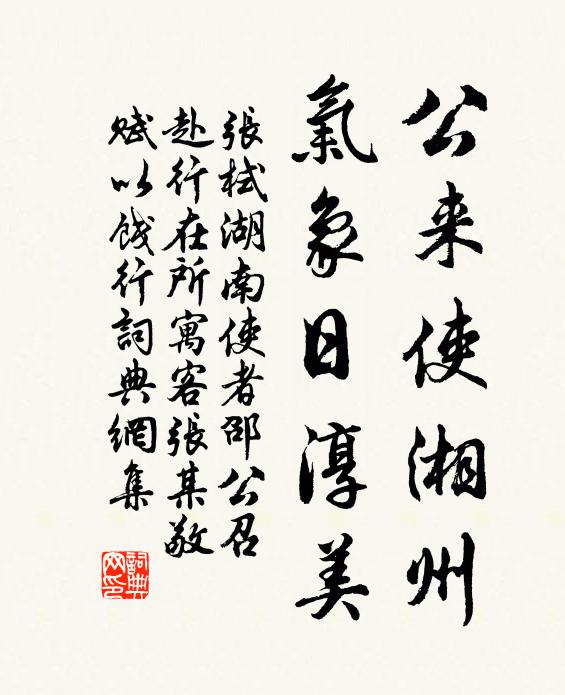 公来使湘州
氣象日淳美
張栻湖南使者邵公召
赴行在所寓客張某敬
賦以餞行詞典網集
詞典
网印